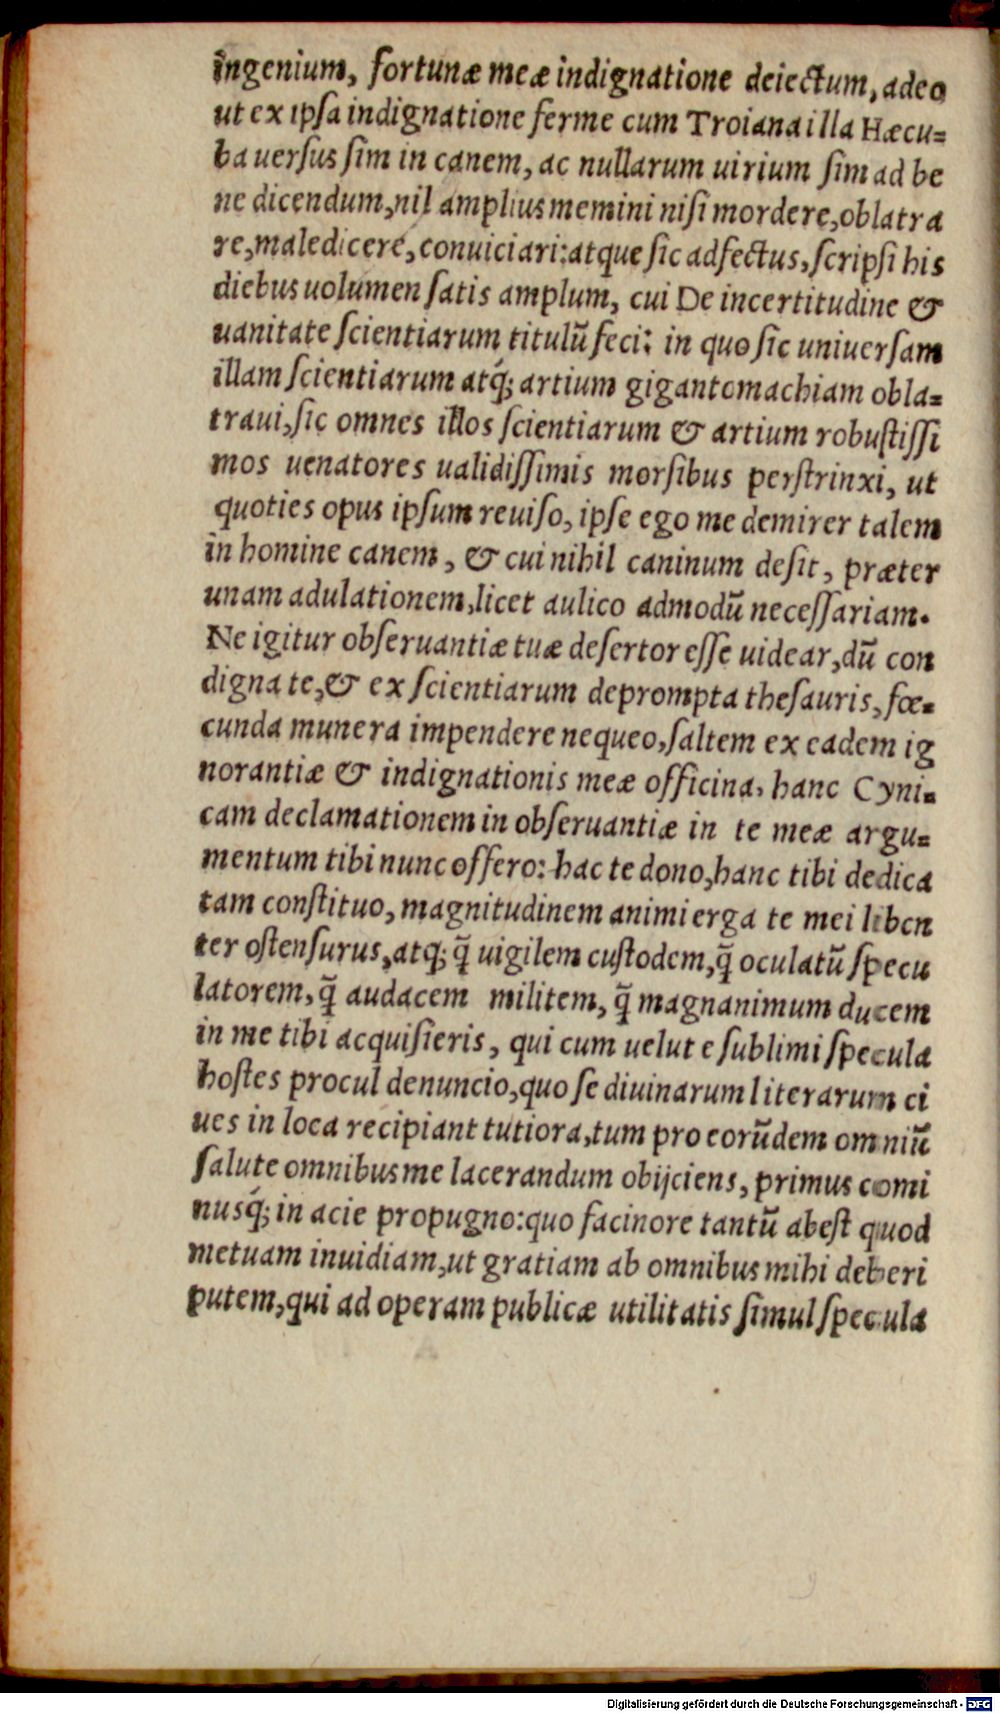 ingenium, fortunæ meæ indignatione deiectum, adeo
ut ex ipſa indignatione ferme cum Troiana illa Hæcu=
ba uerſus ſim in canem, ac nullarum uirium ſim ad be
ne dicendum, nil amplius memini niſi mordere, oblatra
re, maledicere, conuiciari: atque ſic adfectus, ſcripſi his
diebus uolumen ſatis amplum, cui De incertitudine &
uanitate ſcientiarum titulū feci: in quo ſic uniuerſam
illam ſcientiarum atq́; artium gigantomachiam obla=
traui, ſic omnes illos ſcientiarum & artium robuſtiſſi
mos uenatores ualidiſſimis morſibus perſtrinxi, ut
quoties opus ipſum reuiſo, ipſe ego me demirer talem
in homine canem, & cui nihil caninum deſit, præter
unam adulationem, licet aulico admodū neceſſariam.
Ne igitur obſeruantiæ tuæ deſertor eſſe uidear, dū con
digna te, & ex ſcientiarum deprompta theſauris, fœ=
cunda munera impendere nequeo, ſaltem ex eadem ig
norantiæ & indignationis meæ officina, hanc Cyni=
cam declamationem in obſeruantiæ in te meæ argu=
mentum tibi nunc offero: hac te dono, hanc tibi dedica
tam conſtituo, magnitudinem animi erga te mei liben
ter oſtenſurus, atq; q̄ uigilem cuſtodem, q̄ oculatū ſpecu
latorem, q̄ audacem militem, q̄ magnanimum ducem
in me tibi acquiſieris, qui cum uelut e ſublimi ſpecula
hoſtes procul denuncio, quo ſe diuinarum literarum ci
ues in loca recipiant tutiora, tum pro eorūdem omniū
ſalute omnibus me lacerandum obijciens, primus comi
nusq́; in acie propugno: quo facinore tantū abeſt quod
metuam inuidiam, ut gratiam ab omnibus mihi deberi
putem, qui ad operam publicæ utilitatis ſimul ſpecula
Digitalisierung gefördert durch die Deutsche Forschungsgemeinschaft - DFG